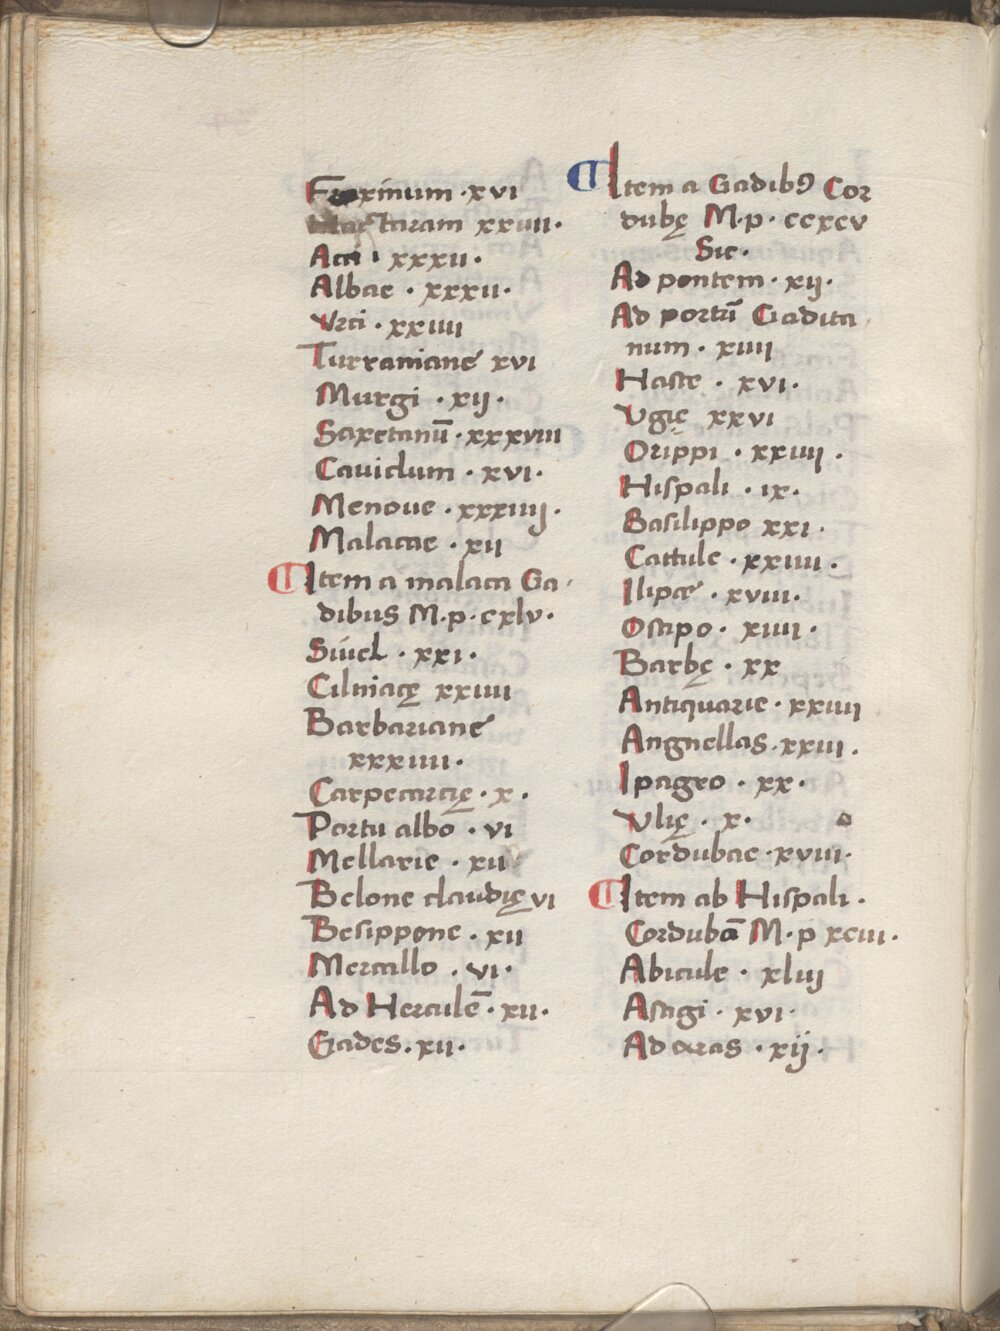 Fraxinum · xvi
Hactaram xxviii ·
Acci · xxxii ·
Albae · xxxii ·
Vrci · xxiiii
Turraniane xvi
Murgi · xij ·
Saxetanū · xxxviii
Cauiclum · xvi ·
Menoue · xxxiiij ·
Malacae · xii
Item a malaca Ga
dibus M · p · cxlv ·
Siuel · xxi ·
Cilniacę xxiiii
Barbariane
xxxiiii ·
Carpecarcię · x ·
Portu albo · vi
Mellarie · xii
Belone claudię vi
Besippone · xii
Mercallo · vi ·
Ad Herculē · xii ·
Gades · xii ·
Item a Gadibꝰ Cor
dubę M · p · ccxcv
Sic ·
Ad pontem · xij ·
Ad portū Gadita
num · xiiij
Haste · xvi ·
Vgię xxvi
Orippi · xxiiij ·
Hispali · ix ·
Basilippo xxi ·
Cattule · xxiiii ·
Ilipae · xviii ·
Ostipo · xiiii ·
Barbę · xx
Antiquarie · xxiiij
Angnellas · xxiii ·
Ipagro · xx ·
Vlię · x ·
Cordubae · xviii ·
Item ab Hispali ·
Cordubā M · p xciii ·
Abicule · xliij
Astigi · xvi ·
Ad aras · xij ·